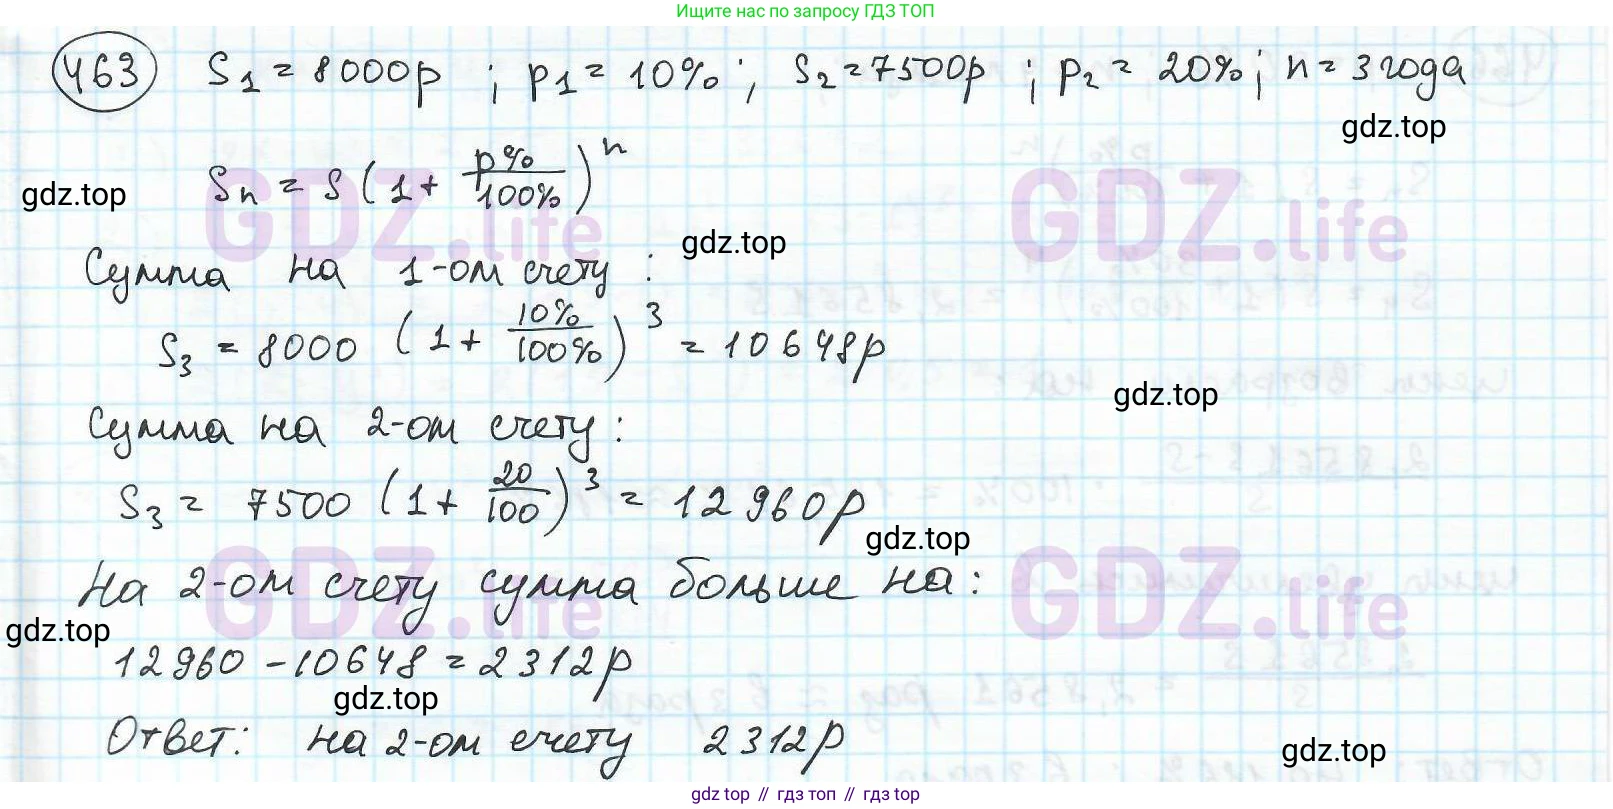 Ищите нас по запросу ГДЗ ТОП
463 S₁ = 8000р ; p₁ = 10% ; S₂ = 7500р ; p₂ = 20% ; n = 3 года
gdz.top
Sₙ = S (1 + p%/100%)ⁿ
gdz.top
GDZ.life GDZ.life
gdz.top
Сумма на 1-ом счету :
S₃ = 8000 (1 + 10%/100%)³ = 10648р
gdz.top
Сумма на 2-ом счету:
S₃ = 7500 (1 + 20/100)³ = 12960р
gdz.top
На 2-ом счету сумма больше на:
GDZ.life GDZ.life
gdz.top
12960 - 10648 = 2312р
gdz.top
Ответ: на 2-ом счету 2312р
gdz.top
gdz top // гдз топ // гдз top